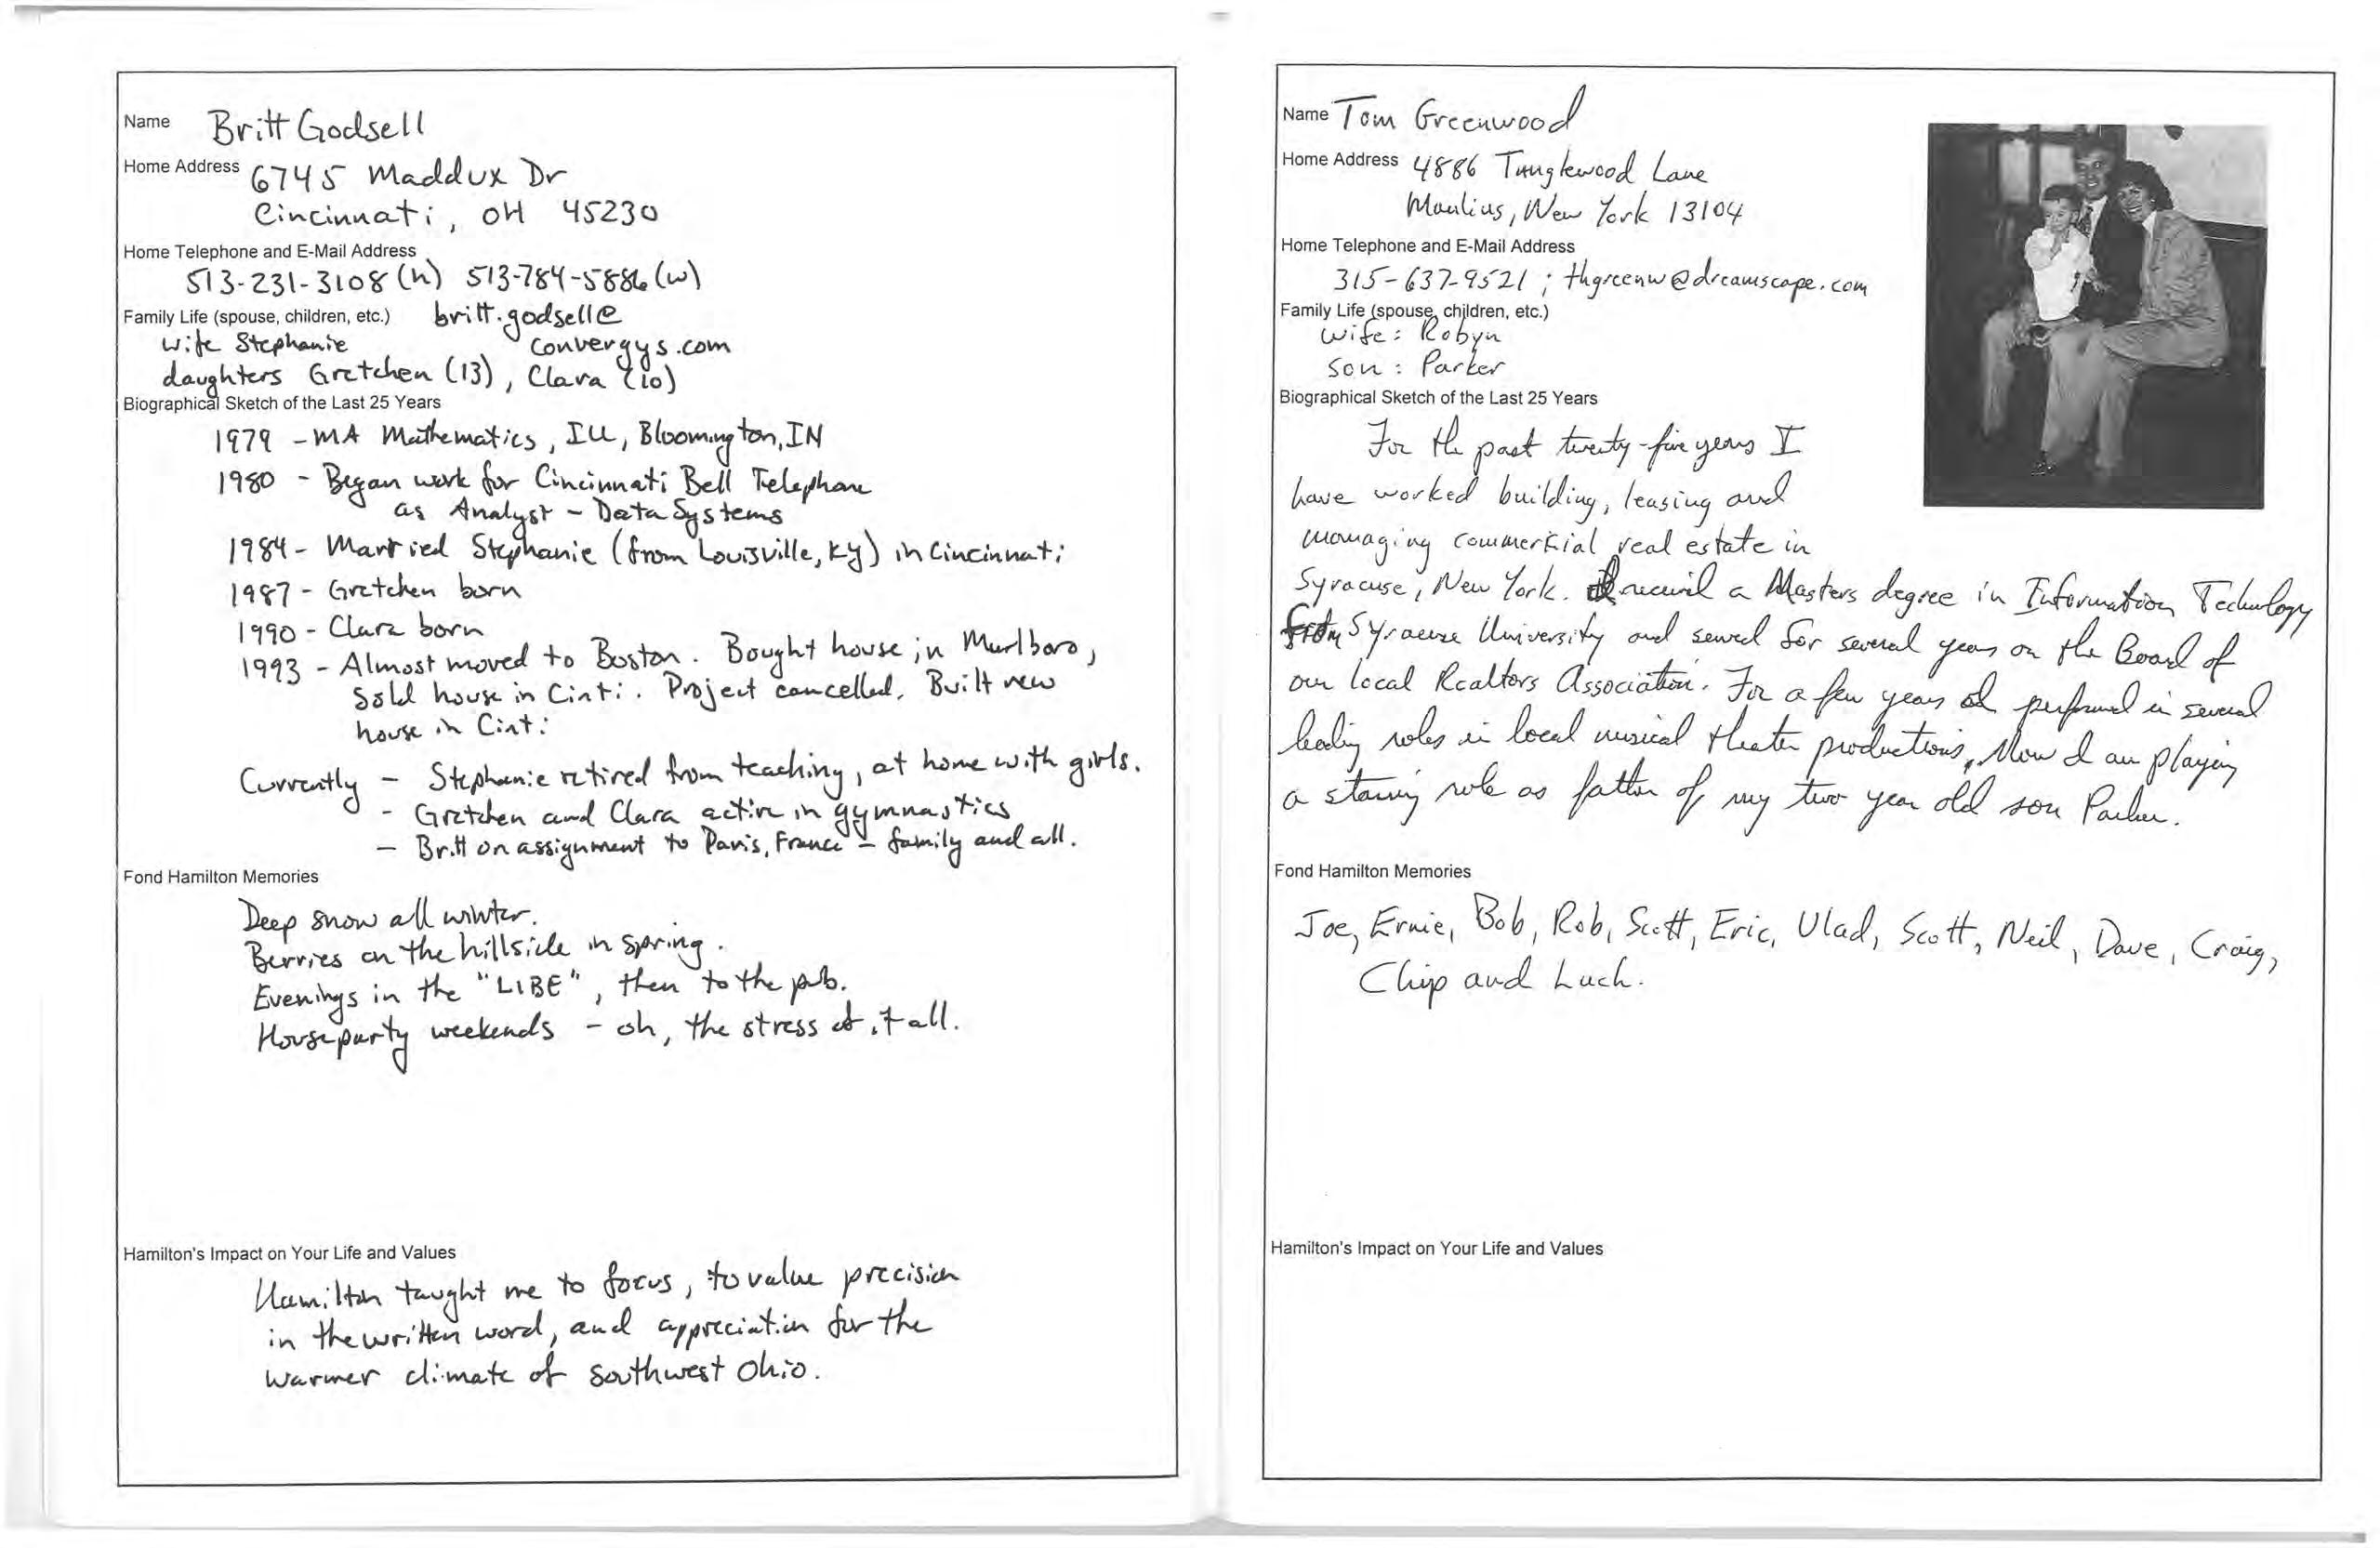 Name Britt Godsell
Home Address 6745 Maddux Dr
Cincinnati, OH 45230
Home Telephone and E-Mail Address
513-231-3108 (h) 513-784-5886 (w)
Family Life (spouse, children, etc.) britt.godsell@
wife Stephanie convergys.com
daughters Gretchen (13), Clara (10)
Biographical Sketch of the Last 25 Years
1979 - MA Mathematics, IU, Bloomington, IN
1980 - Began work for Cincinnati Bell Telephone
as Analyst - Data Systems
1984 - Married Stephanie (from Louisville, Ky) in Cincinnati
1987 - Gretchen born
1990 - Clara born
1993 - Almost moved to Boston. Bought house in Marlboro,
Sold house in Cinti. Project cancelled. Built new
house in Cinti
Currently - Stephanie retired from teaching, at home with girls.
- Gretchen and Clara active in gymnastics
- Britt on assignment to Paris, France - family and all.
Fond Hamilton Memories
Deep snow all winter.
Berries on the hillside in spring.
Evenings in the "LIBE", then to the pub.
Houseparty weekends - oh, the stress of it all.
Hamilton's Impact on Your Life and Values
Hamilton taught me to focus, to value precision
in the written word, and appreciation for the
warmer climate of southwest Ohio.
Name Tom Greenwood
Home Address 4886 Tanglewood Lane
Manlius, New York 13104
Home Telephone and E-Mail Address
315-637-9521 ; thgreenw@dreamscape.com
Family Life (spouse, children, etc.)
wife: Robyn
son: Parker
Biographical Sketch of the Last 25 Years
For the past twenty-five years I
have worked building, leasing and
managing commercial real estate in
Syracuse, New York. I received a Masters degree in Information Technology
from Syracuse University and served for several years on the Board of
our local Realtors Association. For a few years I performed in several
leading roles in local musical theater productions. Now I am playing
a starring role as father of my two year old son Parker.
Fond Hamilton Memories
Joe, Ernie, Bob, Rob, Scott, Eric, Vlad, Scott, Neil, Dave, Craig,
Chip and Luch.
Hamilton's Impact on Your Life and Values